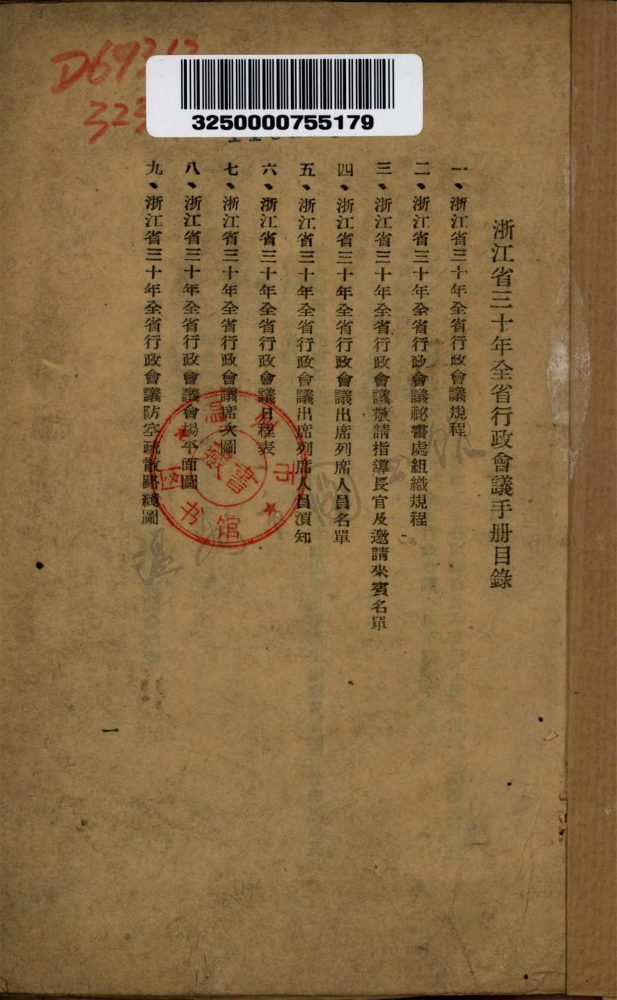 D693.62
323
3250000755179
浙江省三十年全省行政會議手册目錄
一、浙江省三十年全省行政會議規程
二、浙江省三十年全省行政會議祕書處組織規程
三、浙江省三十年全省行政會議敬請指導長官及邀請來賓名單
四、浙江省三十年全省行政會議出席列席人員名單
五、浙江省三十年全省行政會議出席列席人員須知
六、浙江省三十年全省行政會議日程表
七、浙江省三十年全省行政會議席次圖
八、浙江省三十年全省行政會議會場平面圖
九、浙江省三十年全省行政會議防空疏散路綫圖
一
温州市图书馆
藏書